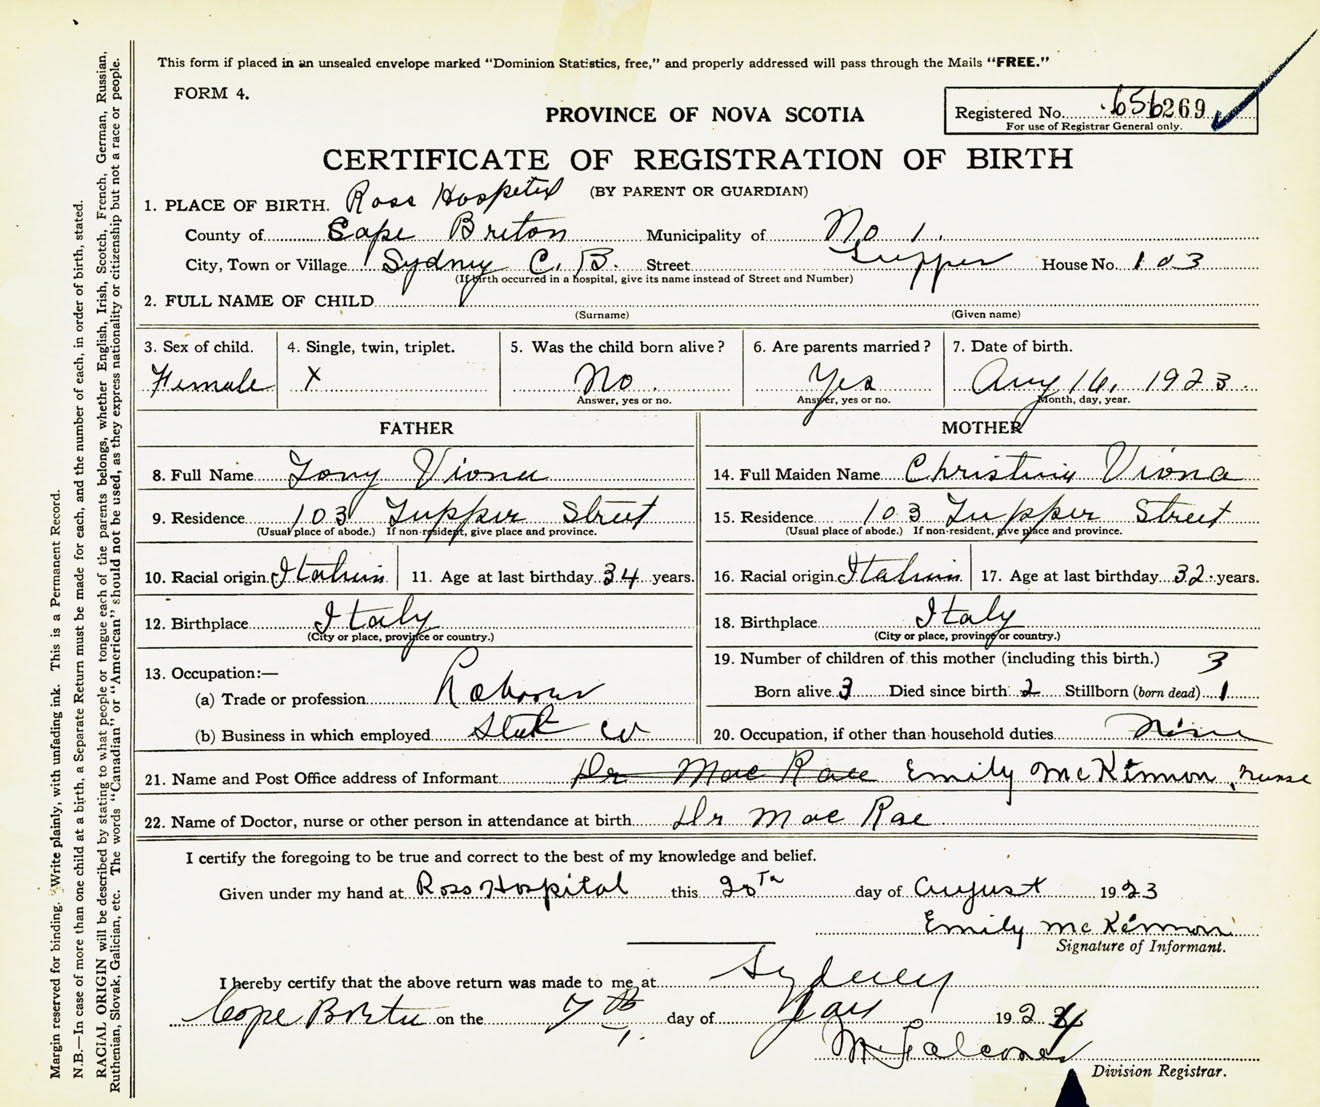 This form if placed in an unsealed envelope marked "Dominion Statistics, free," and properly addressed will pass through the Mails "FREE."
FORM 4.
PROVINCE OF NOVA SCOTIA
Registered No. 656269
For use of Registrar General only.
CERTIFICATE OF REGISTRATION OF BIRTH
(BY PARENT OR GUARDIAN)
1. PLACE OF BIRTH. Ross Hospital
County of Cape Breton Municipality of No 1.
City, Town or Village Sydney C. B. Street Tupper House No. 103
(If birth occurred in a hospital, give its name instead of Street and Number)
2. FULL NAME OF CHILD
(Surname) (Given name)
3. Sex of child. 4. Single, twin, triplet. 5. Was the child born alive? 6. Are parents married? 7. Date of birth.
Female X No. Yes Aug 16, 1923
Answer, yes or no. Answer, yes or no. Month, day, year.
FATHER MOTHER
8. Full Name Tony Viona 14. Full Maiden Name Christina Viona
9. Residence 103 Tupper Street 15. Residence 103 Tupper Street
(Usual place of abode.) If non-resident, give place and province. (Usual place of abode.) If non-resident, give place and province.
10. Racial origin Italian 11. Age at last birthday 34 years. 16. Racial origin Italian 17. Age at last birthday 32 years.
12. Birthplace Italy 18. Birthplace Italy
(City or place, province or country.) (City or place, province or country.)
13. Occupation:— 19. Number of children of this mother (including this birth.) 3
(a) Trade or profession Labourer Born alive 3 Died since birth 2 Stillborn (born dead) 1
(b) Business in which employed Steel Co 20. Occupation, if other than household duties None
21. Name and Post Office address of Informant Dr Mac Rae Emily McKinnon, nurse
22. Name of Doctor, nurse or other person in attendance at birth Dr Mac Rae
I certify the foregoing to be true and correct to the best of my knowledge and belief.
Given under my hand at Ross Hospital this 20th day of August 1923
Emily McKinnon
Signature of Informant.
I hereby certify that the above return was made to me at Sydney
Cape Breton on the 7th day of Jan 1924
Division Registrar.
Margin reserved for binding. Write plainly, with unfading ink. This is a Permanent Record.
N.B.—In case of more than one child at a birth, a Separate Return must be made for each, and the number of each, in order of birth, stated.
RACIAL ORIGIN will be described by stating to what people or tongue each of the parents belongs, whether English, Irish, Scotch, French, German, Russian,
Ruthenian, Slovak, Galician, etc. The words "Canadian" or "American" should not be used, as they express nationality or citizenship but not a race or people.